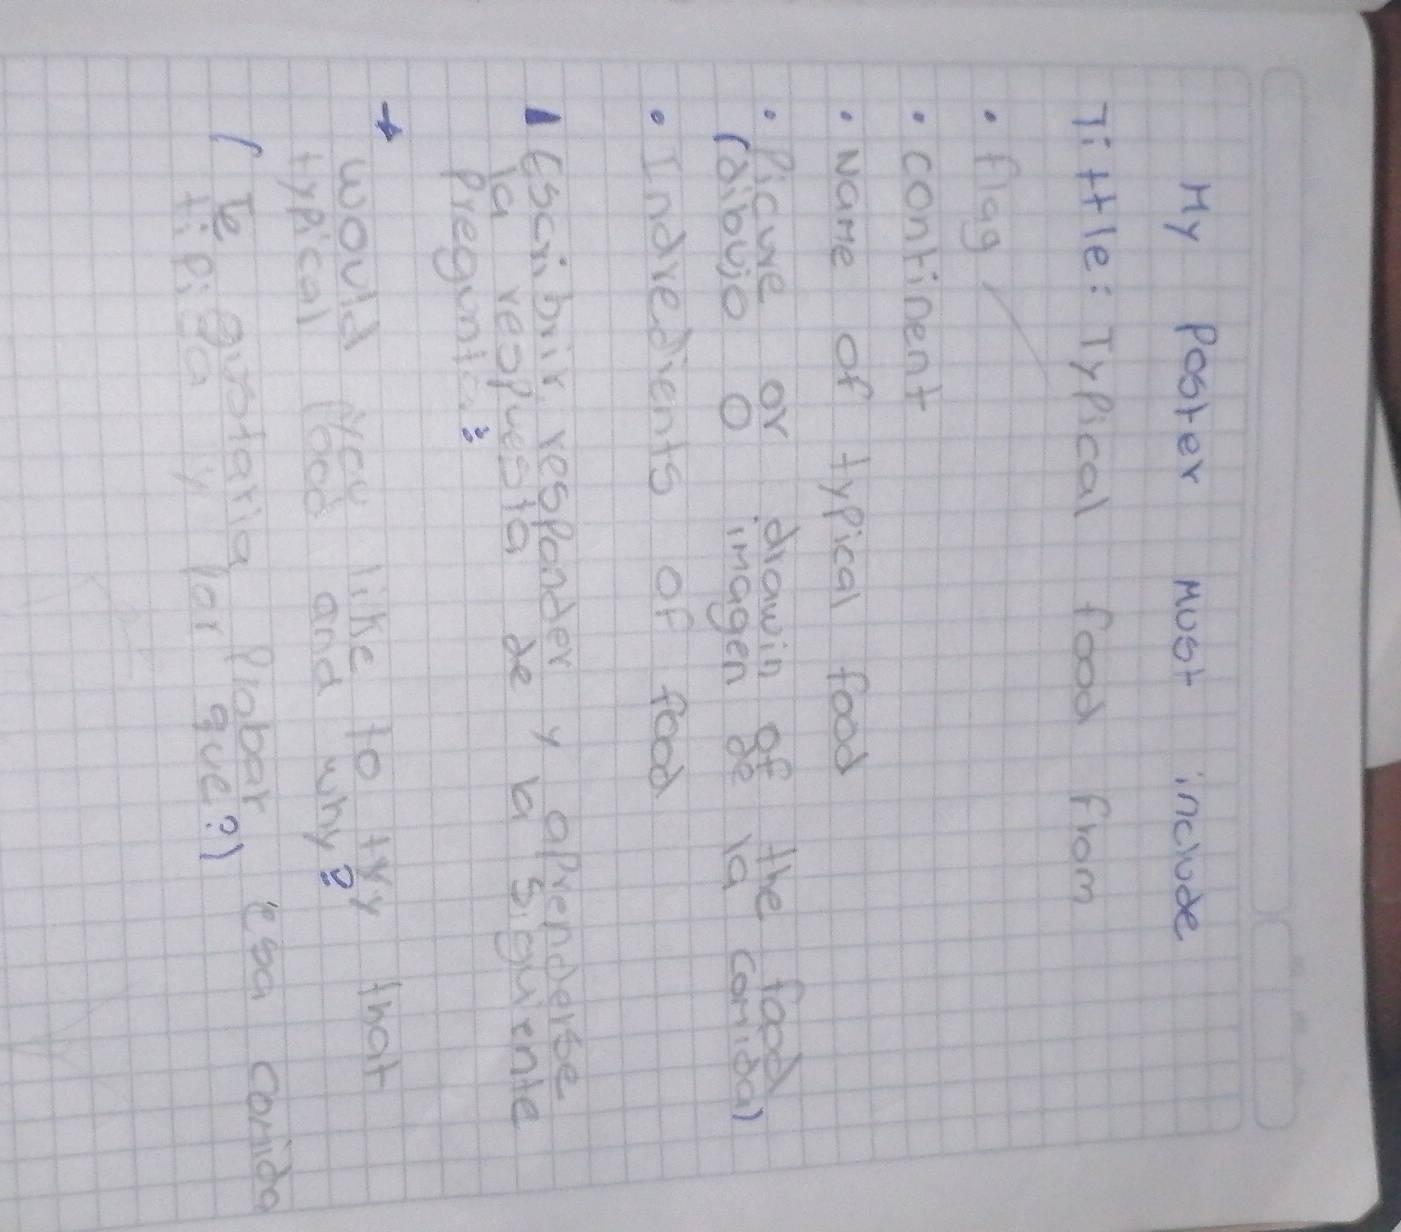 My Poster Must include
Tittle: Typical food from
• flag
• continent
• Name of typical food
• Picure or drawin of the food
(dibujo o imagen de la comida)
• Indredients of food
Escribir, responder y aprenderse
la respuesta de la siguiente
Pregunta:
would you like to try that
typical food and why?
( Te gustaria Probar esa comida
tipica y por que?)